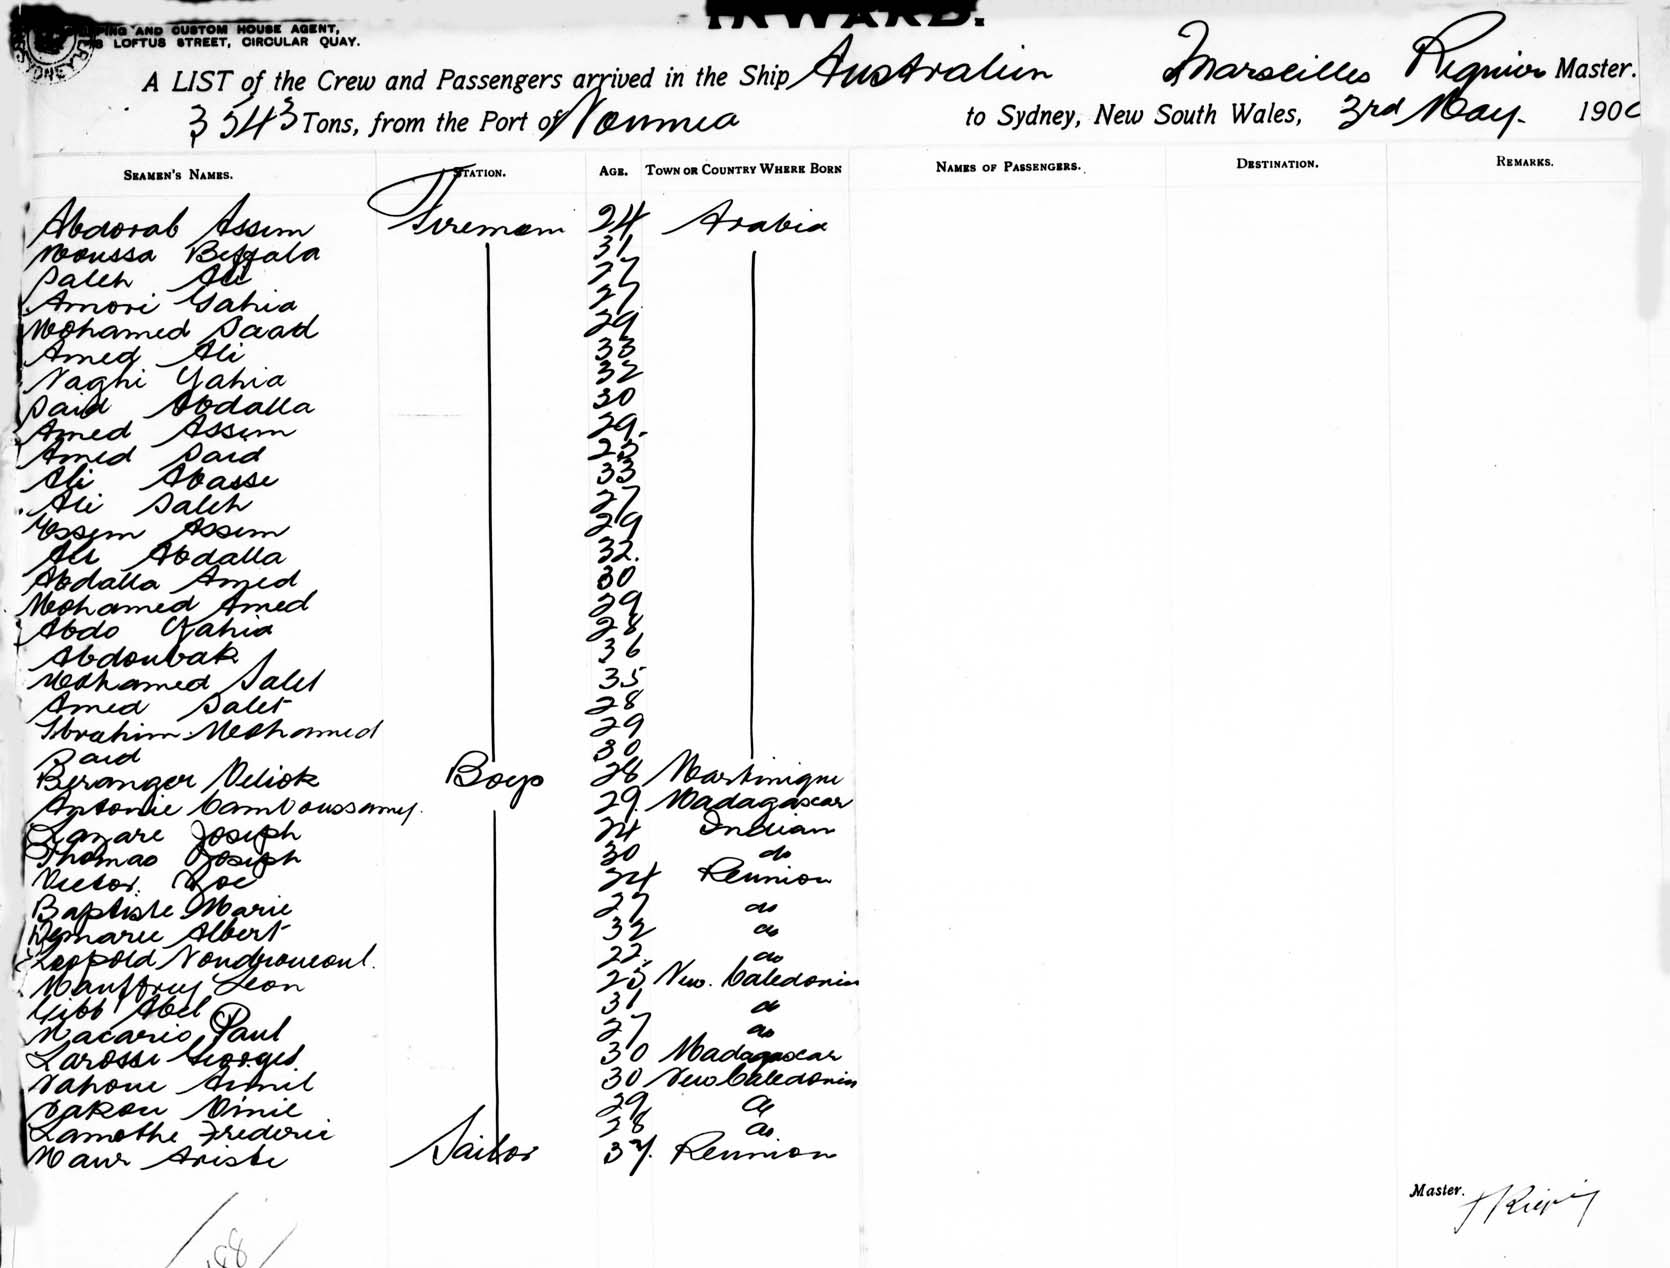 INWARD.
AND CUSTOM HOUSE AGENT,
LOFTUS STREET, CIRCULAR QUAY.
SYDNEY
A LIST of the Crew and Passengers arrived in the Ship Australien Marseilles Regnier Master.
3543 Tons, from the Port of Noumea to Sydney, New South Wales, 3rd May. 190
SEAMEN'S NAMES. STATION. AGE. TOWN OR COUNTRY WHERE BORN NAMES OF PASSENGERS. DESTINATION. REMARKS.
Abdorab Assem Firemen 24 Arabia
Moussa Beffala 31
Saleh Ali 27
Amori Gahia 27
Mohamed Saad 29
Amed Ali 33
Naghi Yahia 32
Said Abdalla 30
Amed Assem 29.
Amed Said 25
Ali Abasse 33
Ali Saleh 27
Essem Assem 29
Ali Abdalla 32.
Abdalla Amed 30
Mohamed Amed 29
Abdo Yahia 28
Abdoubak 36
Mohamed Salet 35
Amed Salet 28
Ibrahim Mohamed 29
Said 30
Beranger Veliok Boys 28 Martinique
Antonie Camboussamy. 29. Madagascar
Lazare Joseph 24 Indian
Thomas Joseph 30 do
Victor. Zoe 24 Reunion
Baptiste Marie 27 do
Demarie Albert 32 do
Leopold 22. do
Mauffrey Leon 25 New. Caledonia
Gibb Abel 31 do
Macario Paul 27 do
Larosse Georges. 30 Madagascar
Vahoue Armil 30 New Caledonia
Vakou Vinie 29 do
Lamothe Frederic 28 do
Maur Ariste Sailor 37. Reunion
Master.
88